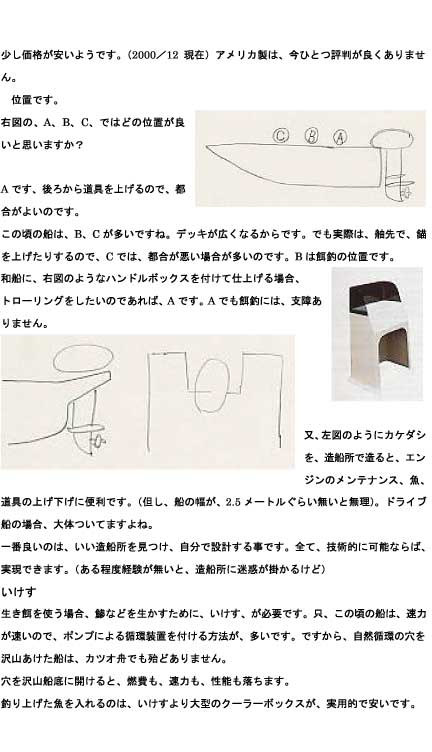 少し価格が安いようです。（2000／12 現在）アメリカ製は、今ひとつ評判が良くありませ
ん。
位置です。
右図の、A、B、C、ではどの位置が良
いと思いますか？
C B A
A です、後ろから道具を上げるので、都
合がよいのです。
この頃の船は、B、C が多いですね。デッキが広くなるからです。でも実際は、舳先で、錨
を上げたりするので、C では、都合が悪い場合が多いのです。B は餌釣の位置です。
和船に、右図のようなハンドルボックスを付けて仕上げる場合、
トローリングをしたいのであれば、A です。A でも餌釣には、支障あ
りません。
又、左図のようにカケダシ
を、造船所で造ると、エン
ジンのメンテナンス、魚、
道具の上げ下げに便利です。（但し、船の幅が、2.5 メートルぐらい無いと無理）。ドライブ
船の場合、大体ついてますよね。
一番良いのは、いい造船所を見つけ、自分で設計する事です。全て、技術的に可能ならば、
実現できます。（ある程度経験が無いと、造船所に迷惑が掛かるけど）
いけす
生き餌を使う場合、鯵などを生かすために、いけす、が必要です。只、この頃の船は、速力
が速いので、ポンプによる循環装置を付ける方法が、多いです。ですから、自然循環の穴を
沢山あけた船は、カツオ舟でも殆どありません。
穴を沢山船底に開けると、燃費も、速力も、性能も落ちます。
釣り上げた魚を入れるのは、いけすより大型のクーラーボックスが、実用的で安いです。